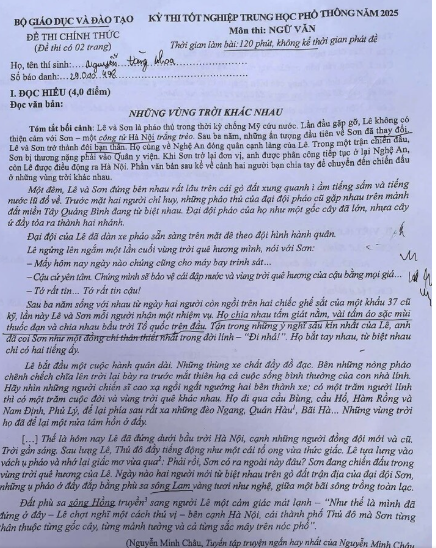 BỘ GIÁO DỤC VÀ ĐÀO TẠO
KỲ THI TỐT NGHIỆP TRUNG HỌC PHỔ THÔNG NĂM 2025
ĐỀ THI CHÍNH THỨC
Môn thi: NGỮ VĂN
(Đề thi có 02 trang)
Thời gian làm bài: 120 phút, không kể thời gian phát đề
Họ, tên thí sinh:
Số báo danh:
I. ĐỌC HIỂU (4,0 điểm)
Đọc văn bản:
NHỮNG VÙNG TRỜI KHÁC NHAU
Tóm tắt bối cảnh: Lê và Sơn là pháo thủ trong thời kỳ chống Mỹ cứu nước. Lần đầu gặp gỡ, Lê không có
thiện cảm với Sơn – một công tử Hà Nội trắng trẻo. Sau ba năm, những ấn tượng đầu tiên về Sơn đã thay đổi,
Lê và Sơn trở thành đôi bạn thân. Họ cùng về Nghệ An đóng quân cạnh làng của Lê. Trong một trận chiến đấu,
Sơn bị thương nặng phải vào Quân y viện. Khi Sơn trở lại đơn vị, anh được phân công tiếp tục ở lại Nghệ An,
còn Lê được điều động ra Hà Nội. Phần văn bản sau kể về cảnh hai người bạn chia tay để chuyển đến chiến đấu
ở những vùng trời khác nhau.
Một đêm, Lê và Sơn đứng bên nhau rất lâu trên cái gò đất xung quanh ì ầm tiếng sấm và tiếng
nước lũ đổ về. Trước mặt hai người chỉ huy, những pháo thủ của đại đội pháo cũ gặp nhau trên mảnh
đất miền Tây Quảng Bình đang từ biệt nhau. Đại đội pháo của họ như một gốc cây đã lớn, nhựa cây
ứ đầy tỏa ra thành hai nhánh.
Đại đội của Lê đã dàn xe pháo sẵn sàng trên mặt đê theo đội hình hành quân.
Lê ngừng lên ngắm một lần cuối vùng trời quê hương mình, nói với Sơn:
– Mấy hôm nay ngày nào chúng cũng cho máy bay trinh sát...
– Cậu cứ yên tâm. Chúng mình sẽ bảo vệ cái đập nước và vùng trời quê hương của cậu bằng mọi giá...
– Tớ rất tin... Tớ rất tin cậu!
Sau ba năm sống với nhau từ ngày hai người còn ngồi trên hai chiếc ghế sắt của một khẩu 37 cũ
kỹ, lần này Lê và Sơn mỗi người nhận một nhiệm vụ. Họ chia nhau tấm giát nằm, vài tấm áo sặc mùi
thuốc đạn và chia nhau bầu trời Tổ quốc trên đầu. Tận trong những ý nghĩ sâu kín nhất của Lê, anh
đã coi Sơn như một đồng chí thân thiết nhất trong đời lính – "Đi nhá!". Họ bắt tay nhau, từ biệt nhau
chỉ có hai tiếng ấy.
Lê bắt đầu một cuộc hành quân dài. Những thùng xe chất đầy đồ đạc. Bên những nòng pháo
chênh chếch chĩa lên trời lại bày ra trước mắt thiên hạ cả cuộc sống bình thường của con nhà lính.
Hãy nhìn những người chiến sĩ cao xạ ngồi ngất ngưởng hai bên thành xe; có một trăm người lính
thì có một trăm cuộc đời và vùng trời quê khác nhau. Họ đi qua cầu Bùng, cầu Hổ, Hàm Rồng và
Nam Định, Phủ Lý, để lại phía sau rất xa những đèo Ngang, Quán Hàu, Bãi Hà... Những vùng trời
họ đã để lại một nửa tâm hồn ở đấy.
[...] Thế là hôm nay Lê đã đứng dưới bầu trời Hà Nội, cạnh những người đồng đội mới và cũ.
Trời gần sáng. Sau lưng Lê, Thủ đô đầy tiếng động như một cái tổ ong vừa thức giấc. Lê tựa lưng vào
vách ụ pháo và nhớ lại giấc mơ vừa qua: Phải rồi, Sơn có ra ngoài này đâu? Sơn đang chiến đấu trong
vùng trời quê hương của Lê. Ngày nào hai người mới từ biệt nhau trên gò đất trận địa của đại đội Sơn,
những ụ pháo ở đấy đắp bằng phù sa sông Lam vàng tươi như nghệ, giữa một bãi sông trồng toàn lạc.
Đất phù sa sông Hồng truyền sang người Lê một cảm giác mát lạnh – "Như thế là mình đã
đứng ở đây – Lê chợt nghĩ một cách thú vị – bên cạnh Hà Nội, cái thành phố Thủ đô mà Sơn từng
thân thuộc từng gốc cây, từng mảnh tường và cả từng sắc mây trên nóc phố".
(Nguyễn Minh Châu, Tuyển tập truyện ngắn hay nhất của Nguyễn Minh Châu